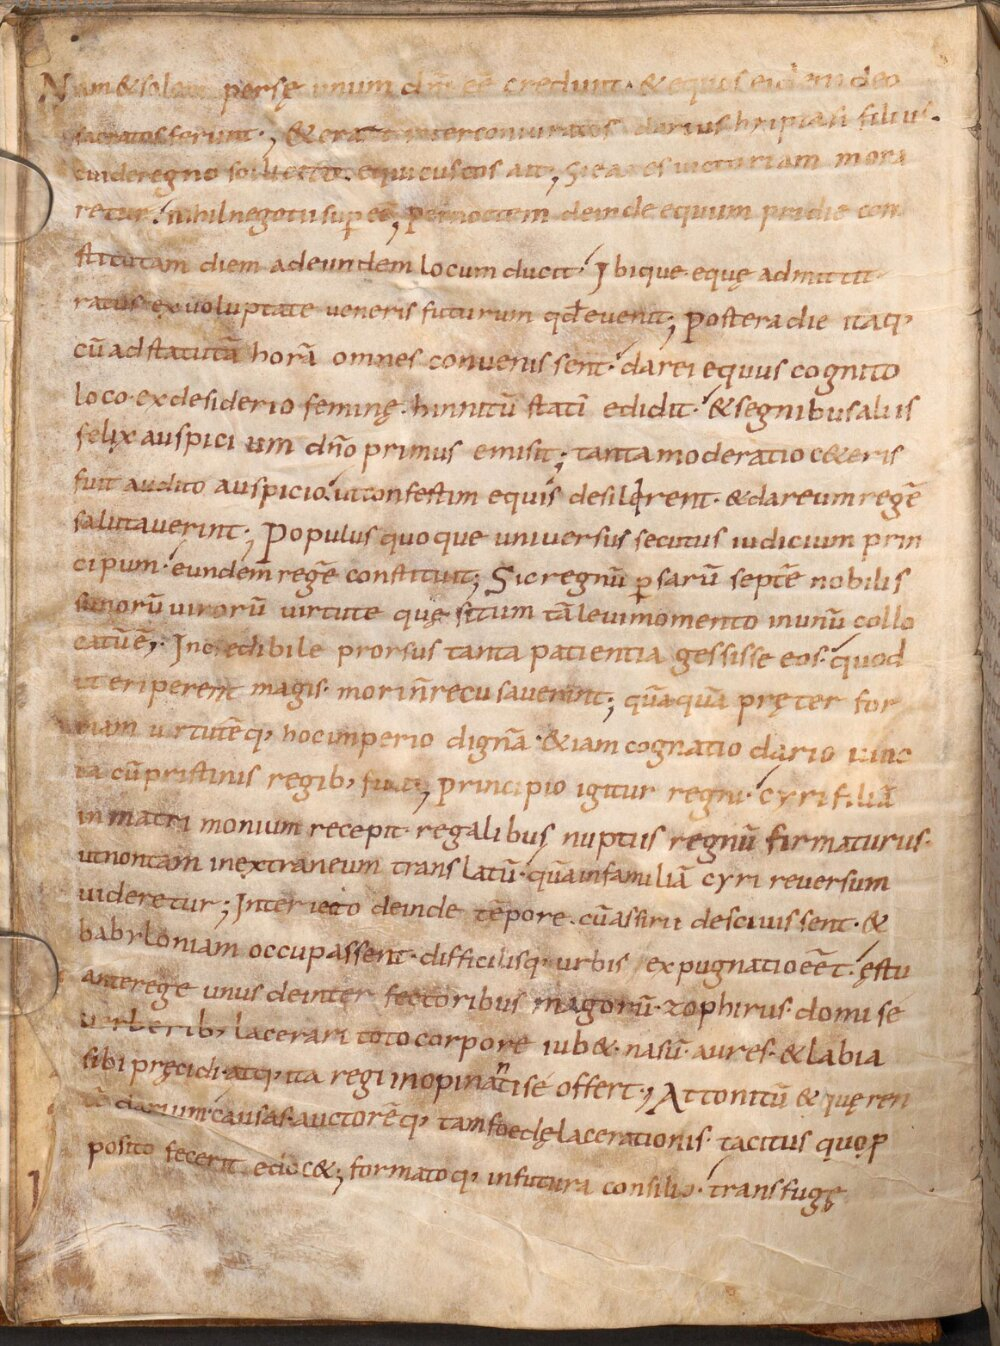 Nam & solem persę unum dm̄ eē credunt · & equos eidem deo
sacratos ferunt ·, & erat inter coniuratos darius hyptasi filius ·
cui de regno sollicito · equi custos ait, Si ea res uictoriam mora
retur · nihil negotii sup eē, per noctem deinde equum pridie con
stitutam diem ad eundem locum ducit · Ibique equę admittit
ratus ex uoluptate ueneris futurum qđ euenit; postera die itaq,
cū ad statutā horā omnes conuenissent · darei equus cognito
loco · ex desiderio feminę · hinnitū statī edidit · & segnibus aliis
felix auspicium dn̄o primus emisit; tanta moderatio c&eris
fuit audito auspicio · ut confestim equis desilirent · & dareum regē
salutauerint; Populus quoque uniuersus secutus iudicium prin
cipum · eundem regē constituit; Sic regnū ꝑsarū septē nobilis
simorū uirorū uirtute quęsitum tā leui momento in unū collo
catū ē, Incredibile prorsus tanta patientia gessisse eos · quod
ut eriperent magis · mori n̄ recusauerint; quāquā pręter for
mam uirtutēq, hoc imperio dignā · & iam cognatio dario iunc
ta cū pristinis regib, fuit, Principio igitur regni · cyri filiā
in matrimonium recepit · regalibus nuptiis regnū firmaturus ·
ut non tam in extraneum translatū · quā in familiā cyri reuersum
uideretur; Interiecto deinde tēpore · cū assirii desciuissent · &
babyloniam occupassent · difficilisq· urbis expugnatio eēt · ęstu
ante rege unus de interfectoribus magorū · zophirus · domi se
uerberib, lacerari toto corpore iub& · nasū · aures · & labia
sibi pręcidi · atq, ita regi inopinanti se offert, Attonitū & quęren
tē darium causas · auctorēq, tam foedę lacerationis · tacitus quo p
posito fecerit edoc&; formatoq, in futura consilio · transfugę